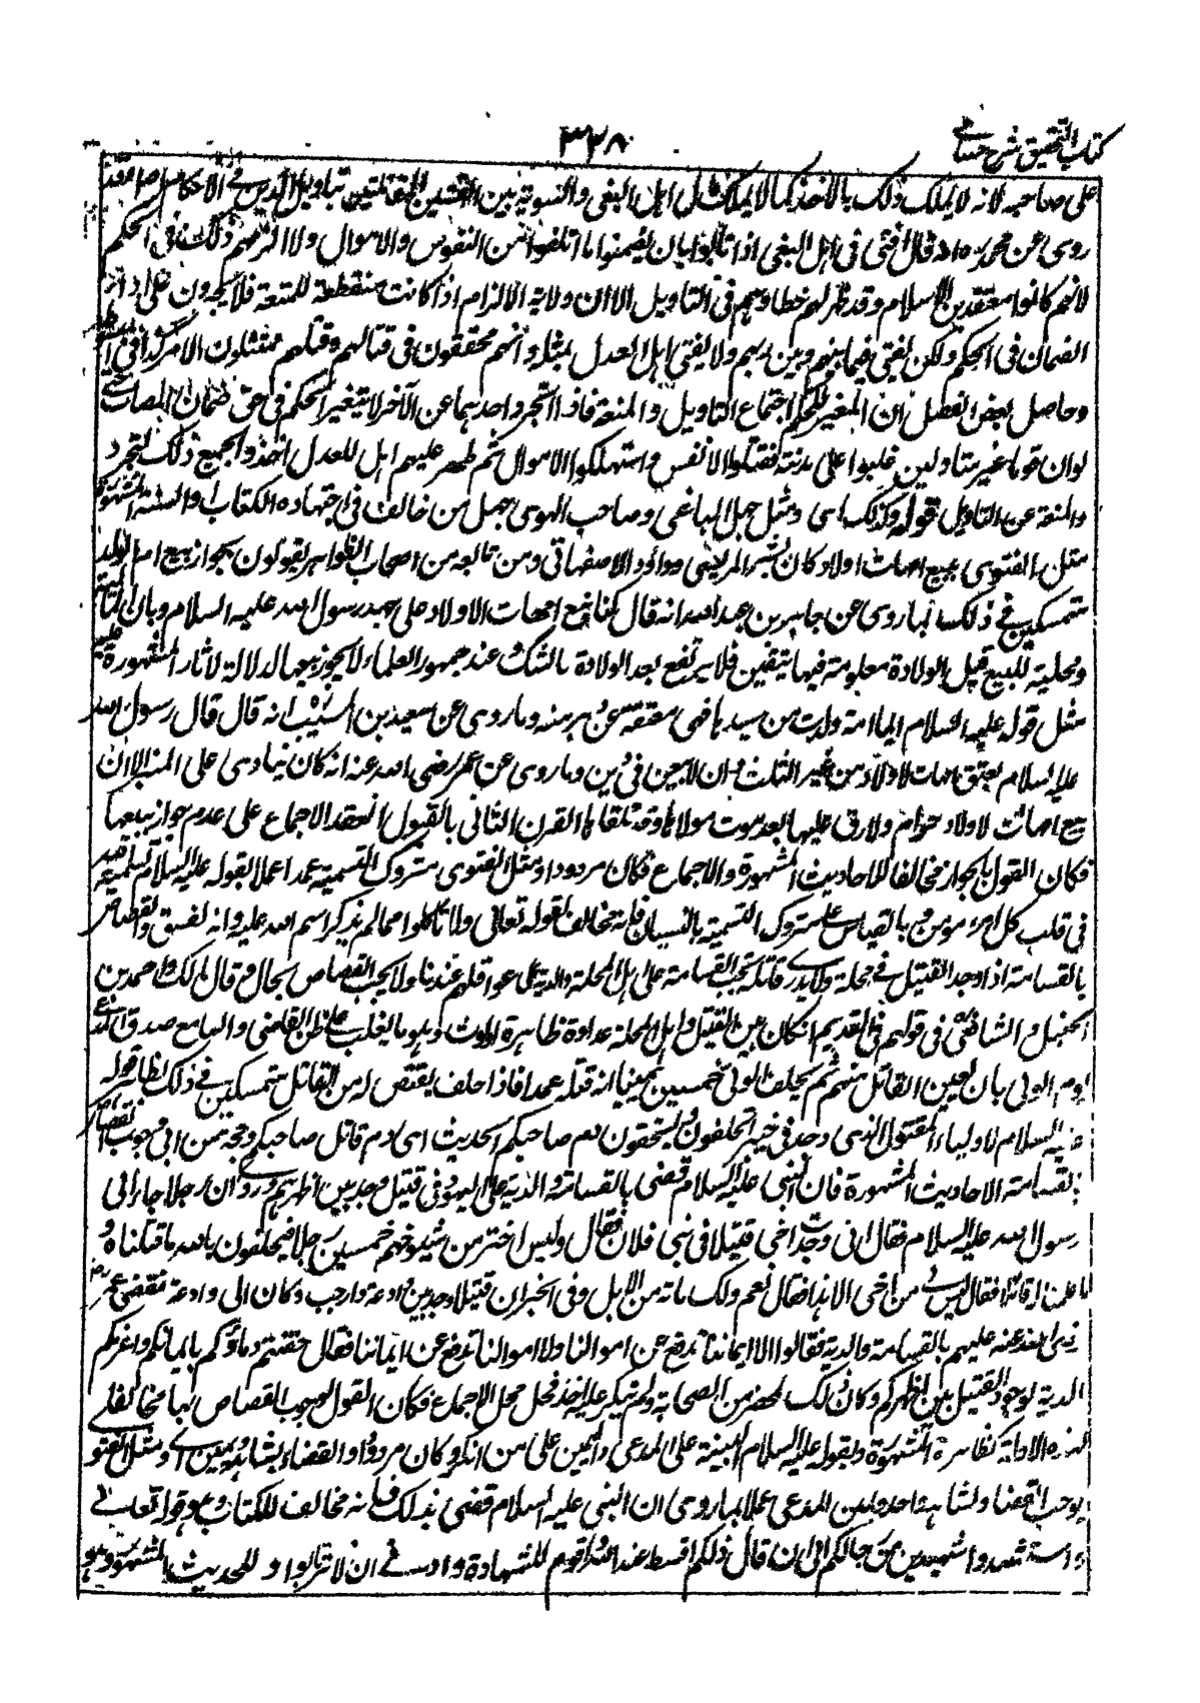 كتاب التحقيق شرح حسامي
٣٢٨
على صاحبه لانه لا يملك ذلك بالاخذ كما لا يملك مال اهل البغى والتسوية بين الفئتين المقاتلتين بتاويل الدين فى الاحكام
روى عن محمد ره انه قال افتى فى اهل البغى اذا تابوا بان يضمنوا ما اتلفوا من النفوس والاموال ولا الزمهم ذلك فى الحكم
لانهم كانوا معتقدين الاسلام وقد ظهر لهم خطاؤهم فى التاويل الا ان ولاية الالزام اذا كانت منقطعة للمنعة فلا يجبرون على اداء
الضمان فى الحكم ولكن يفتى فيما بينهم وبين ربهم ولا يفتى اهل العدل بمثله وانهم محققون فى قتالهم وقتلهم ممتثلون الامر كذا فى
وحاصل بعض الفصل ان المغير للحكم اجتماع التاويل والمنعة فاذا تجرد احدهما عن الآخر لا يتغير الحكم فى حق ضمان المصاب حتى
لو ان قوما غير متاولين غلبوا على مدينة فقتلوا الانفس واستهلكوا الاموال ثم ظهر عليهم اهل العدل اخذوا بجميع ذلك لتجرد
المنعة عن التاويل قوله وكذلك اى ومثل جهل الباغى وصاحب الهوى جهل من خالف فى اجتهاده الكتاب والسنة المشهورة
مثل الفتوى ببيع امهات اولاد كان بشر المريسى وداود الاصفهانى ومن تابعه من اصحاب الظواهر يقولون بجواز بيع ام الولد
متمسكين فى ذلك بما روى عن جابر بن عبد الله انه قال كنا نبيع امهات الاولاد على عهد رسول الله عليه السلام وبان المالية
ومحلية للبيع قبل الولادة معلومة فيها بيقين فلا يرتفع بعد الولادة بالشك وعند جمهور العلماء لا يجوز بيعها لدلالة الاثار المشهورة عليه
مثل قوله عليه السلام ايما امة ولدت من سيدها فهى معتقة عن دبر منه وما روى عن سعيد بن المسيب انه قال قال رسول الله
عليه السلام بعتق امهات الاولاد من غير الثلث وان لا يبعن فى دين وما روى عن عمر رضى الله عنه انه كان ينادى على المنبر الا ان
بيع امهات الاولاد حرام ولا رق عليها بعد موت مولاها وقد تلقاها القرن الثانى بالقبول وانعقد الاجماع على عدم جواز بيعها
فكان القول بالجواز مخالفا للاحاديث المشهورة والاجماع فكان مردودا ومثل الفتوى متروك التسمية عمدا عملا بقوله عليه السلام تسمية الله
فى قلب كل امرء مومن وبالقياس على متروك التسمية بالنسيان فانه مخالف لقوله تعالى ولا تاكلوا مما لم يذكر اسم الله عليه وانه لفسق والقصاص
بالقسامة اذا وجد القتيل فى محلة ولا يدرى قاتله تجب القسامة على اهل المحلة والدية على عواقلهم عندنا ولا يجب القصاص بحال وقال مالك واحمد بن
الحنبل والشافعى فى قولهم فى القديم ان كان بين القتيل واهل المحلة عداوة ظاهرة او لوث وهو ما يغلب على ظن القاضى والسامع صدق المدعى
يومر الولى بان يعين القاتل منهم ثم يحلف الولى خمسين يمينا انه قتله عمدا فاذا حلف يقتص له من القاتل متمسكين فى ذلك بظاهر قوله
عليه السلام لاولياء المقتول الذى وجد فى خيبر اتحلفون وتستحقون دم صاحبكم الحديث اى دم قاتل صاحبكم وحجة من ابى وجوب القصاص
بالقسامة الاحاديث المشهورة فان النبى عليه السلام قضى بالقسامة والدية على اليهود فى قتيل وجد بين اظهرهم وروى ان رجلا جاء الى
رسول الله عليه السلام فقال انى وجدت اخى قتيلا فى بنى فلان فقال وليس اختر من شيوخهم خمسين رجلا فيحلفون بالله ما قتلناه و
لا علمنا قاتلا فقال ليس لى من اخى الا هذا فقال نعم ولك مائة من الابل وفى الخبر ان قتيلا وجد بين وادعة وارحب وكان الى وادعة فقضى عمر
رضى الله عنه عليهم بالقسامة والدية فقالوا لا ايماننا تدفع عن اموالنا ولا اموالنا تدفع عن ايماننا فقال حقنتم دماؤكم بايمانكم واغرمكم
الدية لوجود القتيل بين اظهركم وكان ذلك بمحضر من الصحابة ولم ينكر عليه احد فحل محل الاجماع فكان القول بوجوب القصاص بها مخالفا
لهذه الادلة الظاهرة المشهورة ولقوله عليه السلام البينة على المدعى واليمين على من انكر وكان مردودا والقضاء بشاهد ويمين اى ومثل الفتوى
بوجوب القضا بشاهد واحد ويمين المدعى عملا بما روى ان النبى عليه السلام قضى بذلك فانه مخالف للكتاب وهو قوله تعالى
واستشهدوا شهيدين من رجالكم الى ان قال ذلكم اقسط عند الله واقوم للشهادة وادنى ان لا ترتابوا وللحديث المشهور وهو